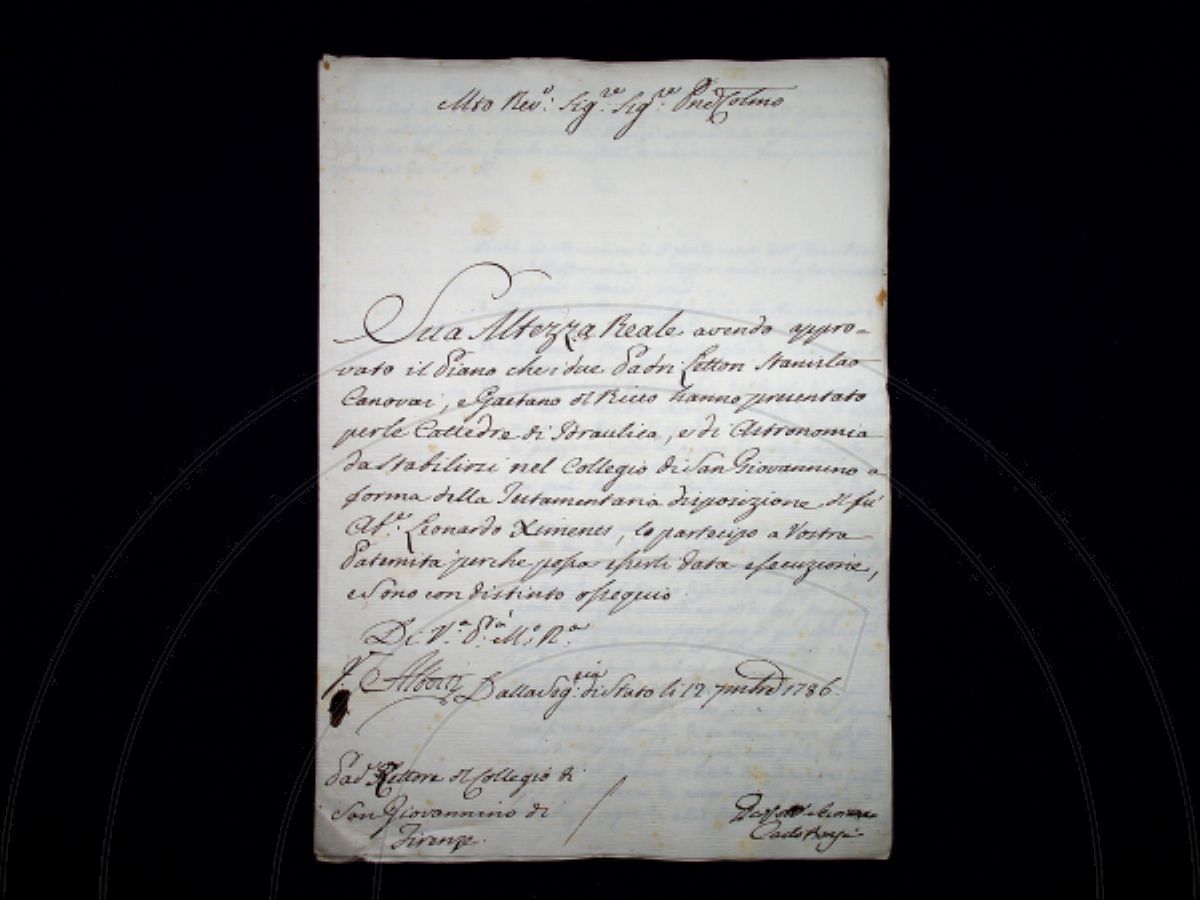 Mto Rev.o Sig.re Sig.re Pne Colmo
Sua Altezza Reale avendo appro-
vato il Piano che i due Padri Lettori Stanislao
Canovai, e Gaetano del Ricco hanno presentato
per le Cattedre di Idraulica, e di Astronomia
da stabilirsi nel Collegio di San Giovannino a
forma della Testamentaria disposizione del fù
Ab.e Leonardo Ximenes, lo partecipo a Vostra
Paternità perche possa esserli data esecuzione,
e sono con distinto ossequio
Di V.a P.tà M.o R.a
V. Alberti Dalla Seg.ria di Stato li 12 7mbre 1786.
Pad.e Rettore del Collegio di
San Giovannino di
Firenze.
Carlo Bonsi